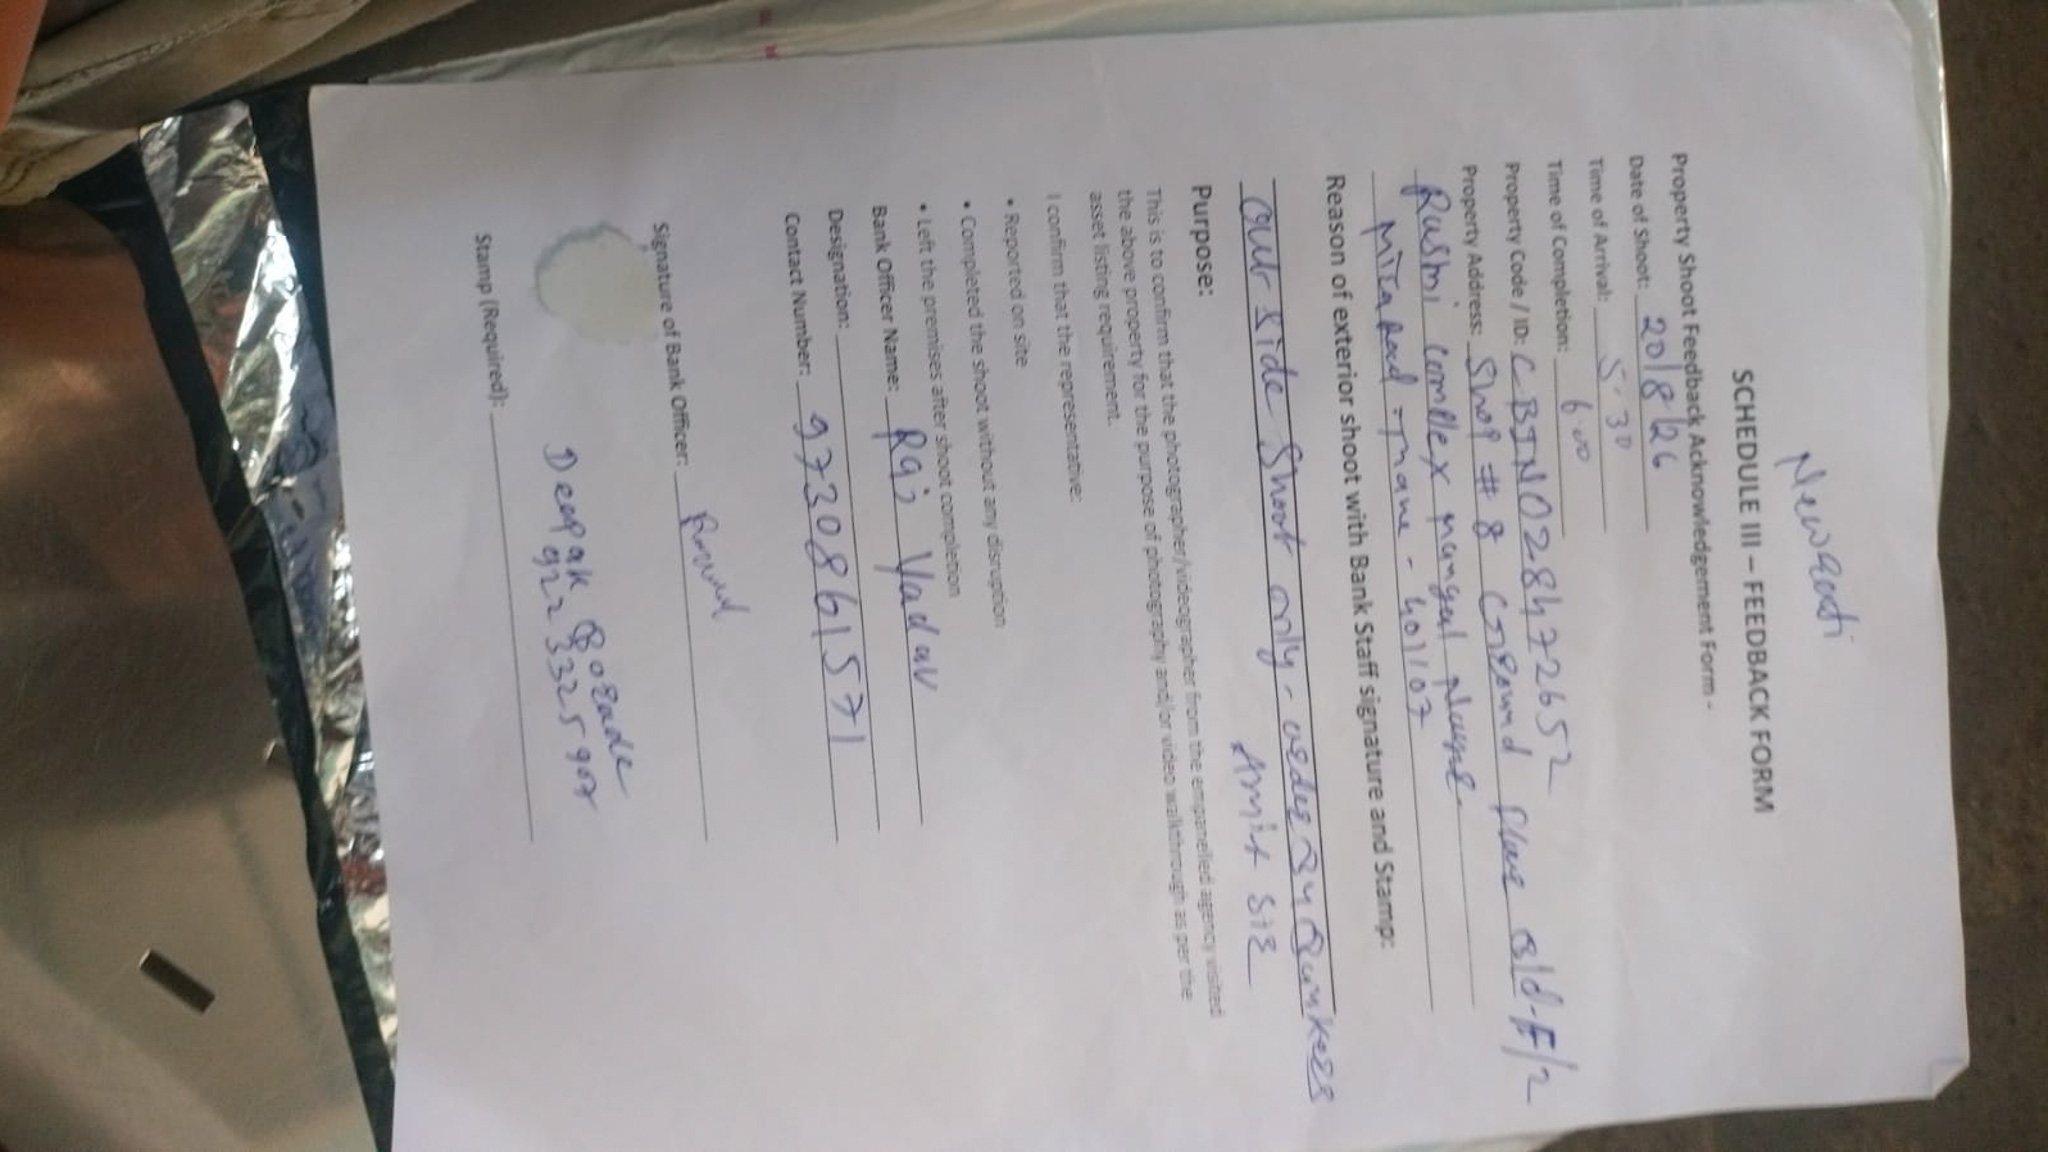 Newaati
SCHEDULE III – FEEDBACK FORM
Property Shoot Feedback Acknowledgement Form -
Date of Shoot: 20/8/26
Time of Arrival: 5.30
Time of Completion: 6.00
Property Code / ID: CBIN028472652
Property Address: Shop # 8 Ground Bld-F/2
Rashmi complex mangal Nagar
Mira Road - Thane - 401107
Reason of exterior shoot with Bank Staff signature and Stamp:
Out side Shoot only - order By Bankers
Amit SIR
Purpose:
This is to confirm that the photographer/videographer from the empanelled agency visited
the above property for the purpose of photography and/or video walkthrough as per the
asset listing requirement.
I confirm that the representative:
• Reported on site
• Completed the shoot without any disruption
• Left the premises after shoot completion
Bank Officer Name: Raj Yadav
Designation:
Contact Number: 9730861571
Signature of Bank Officer:
Deepak Borade
Stamp (Required):